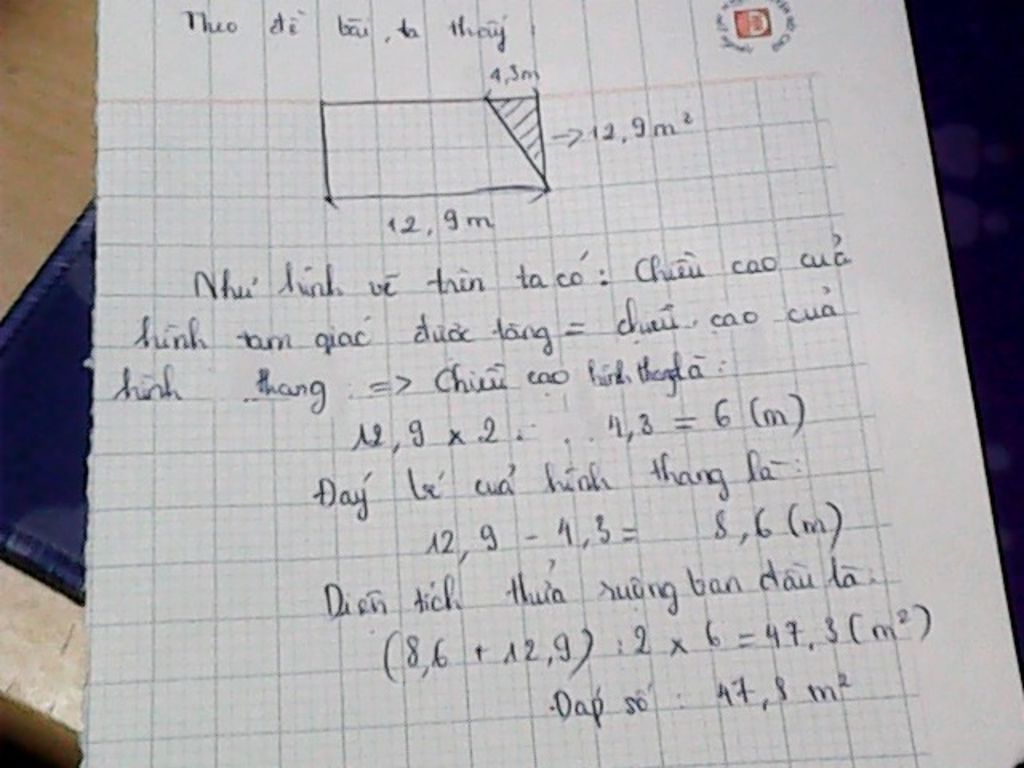 Theo đề bài, ta thấy
4,3m
=> 12,9 m²
12,9m
Như hình vẽ trên ta có: Chiều cao của
hình tam giác được tăng = chiều cao của
hình thang => Chiều cao hình thang là:
12,9 x 2 : 4,3 = 6 (m)
Đáy bé của hình thang là:
12,9 - 4,3 = 8,6 (m)
Diện tích thửa ruộng ban đầu là:
(8,6 + 12,9) : 2 x 6 = 47,3 (m²)
Đáp số: 47,3 m²